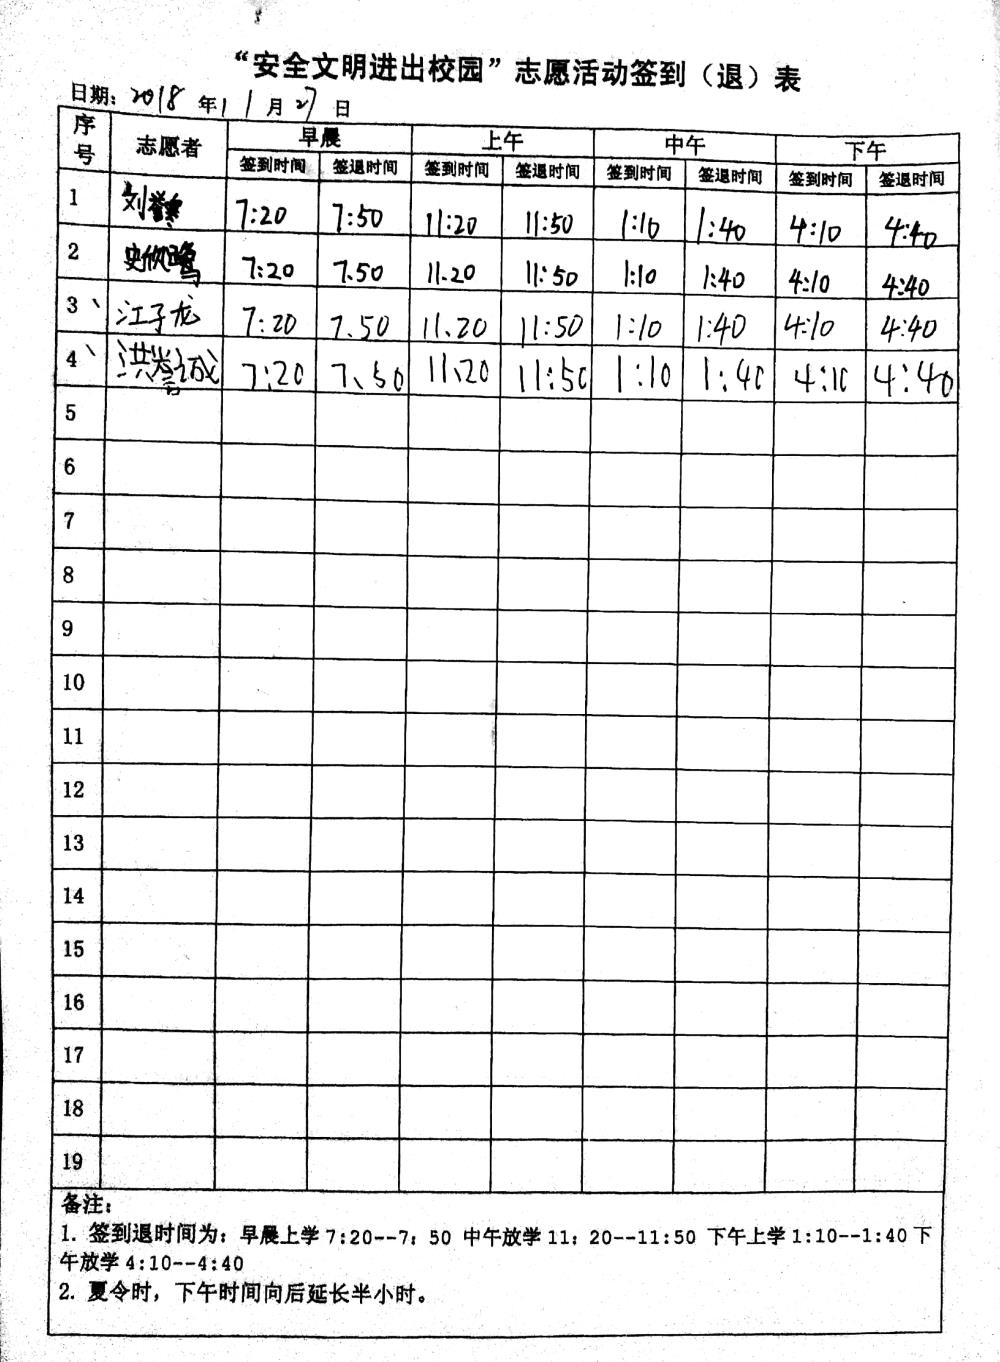 “安全文明进出校园”志愿活动签到（退）表
日期：2018年11月27日
序号 志愿者 早晨 上午 中午 下午
签到时间 签退时间 签到时间 签退时间 签到时间 签退时间 签到时间 签退时间
1 刘 7:20 7:50 11:20 11:50 1:10 1:40 4:10 4:40
2 史欣鹭 7:20 7.50 11.20 11:50 1:10 1:40 4:10 4:40
3、江子龙 7:20 7.50 11.20 11:50 1:10 1:40 4:10 4:40
4、洪誉诚 7:20 7、50 11、20 11:50 1:10 1:40 4:10 4:40
5
6
7
8
9
10
11
12
13
14
15
16
17
18
19
备注：
1. 签到退时间为：早晨上学7:20--7：50 中午放学11：20--11:50 下午上学1:10--1:40下
午放学4:10--4:40
2. 夏令时，下午时间向后延长半小时。